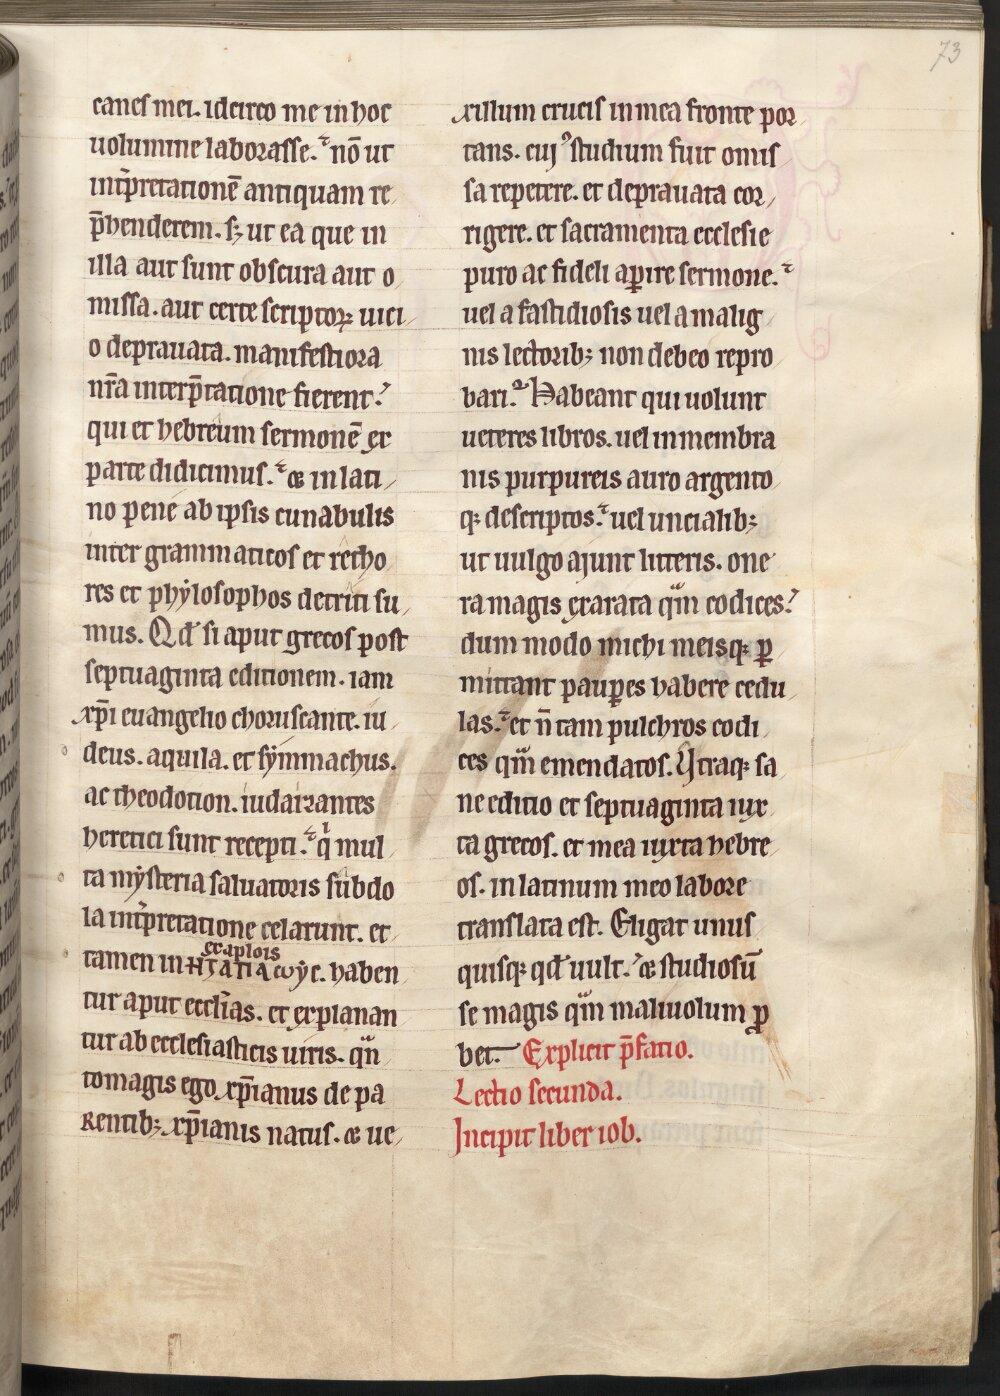 73
canes mei. idcirco me in hoc
uolumine laborasse. nō ut
int̄pretationē antiquam re
p̄henderem. sꝫ ut ea que in
illa aut sunt obscura aut o
missa. aut certe scriptoꝝ uici
o deprauata. manifestiora
nr̄a interp̄tatione fierent.
qui et hebreum sermonē ex
parte didicimus. & in lati
no pene ab ipsis cunabulis
inter grammaticos et retho
res et phẏlosophos detriti su
mus. Qd̄ si aput grecos post
septuaginta editionem. iam
xp̄i euangelio choruscante. iu
deus. aquila. et sẏmmachus.
ac theodotion. iudaizantes
heretici sunt recepti. qͥ mul
ta mẏsteria saluatoris subdo
la int̄pretatione celarunt. et
exaplois
tamen in ꟶ haben
tur aput eccl̄ias. et explanan
tur ab ecclesiasticis uiris. qn̄
to magis ego xp̄ianus de pa
rentibꝫ xp̄ianis natus. & ue
xillum crucis in mea fronte por
tans. cujꝰ studium fuit omis
sa repetere. et deprauata cor
rigere. et sacramenta ecclesie
puro ac fideli aꝑire sermone.
uel a fastidiosis uel a malig
nis lectoribꝫ non debeo repro
bari. Habeant qui uolunt
ueteres libros. uel in membra
nis purpureis auro argento
qꝫ descriptos. uel uncialibꝫ
ut uulgo ajunt litteris. one
ra magis exarata qᵃm codices.
dum modo michi meisqꝫ ꝑ
mittant pauꝑes habere cedu
las. et n̄ tam pulchros codi
ces qᵃm emendatos. Utraqꝫ sa
ne editio et septuaginta iux
ta grecos. et mea iuxta hebre
os. in latinum meo labore
translata est. Eligat unus
quisqꝫ qd̄ uult. & studiosū
se magis qᵃm maliuolum ꝓ
bet. Explicit p̄fatio.
Lectio secunda.
Incipit liber iob.